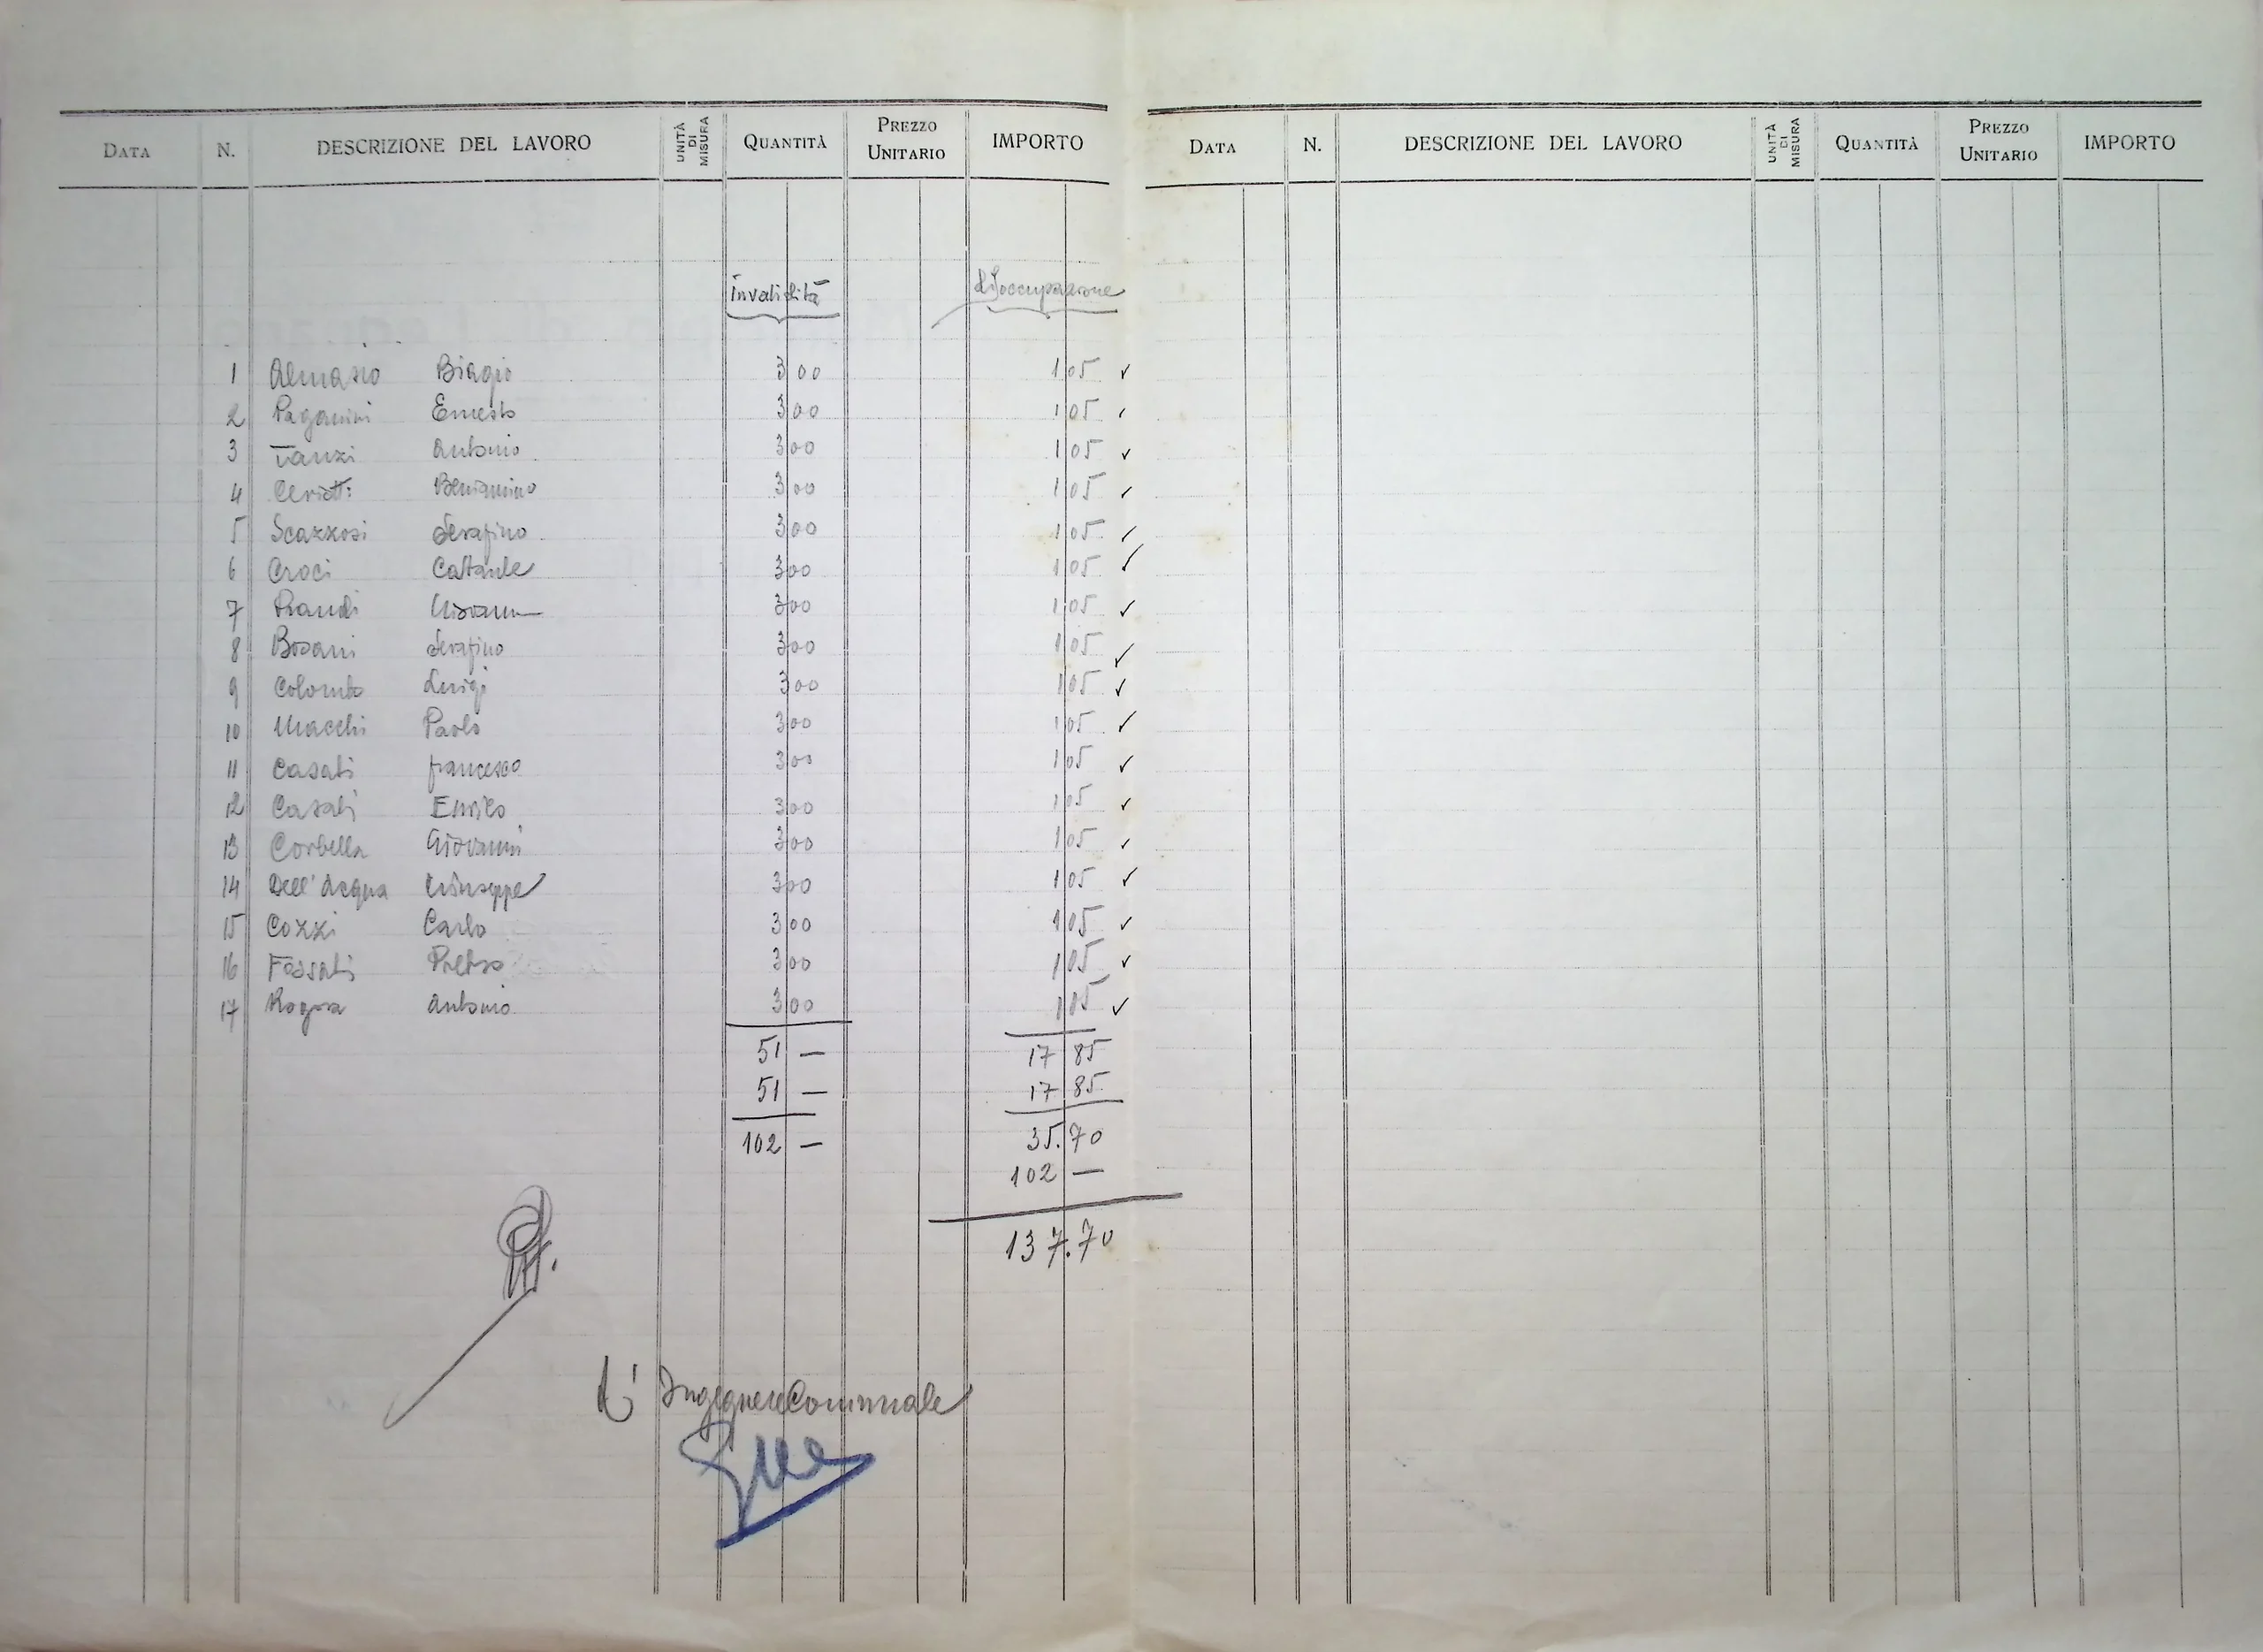 DATA N. DESCRIZIONE DEL LAVORO UNITÀ DI MISURA QUANTITÀ PREZZO UNITARIO IMPORTO
DATA N. DESCRIZIONE DEL LAVORO UNITÀ DI MISURA QUANTITÀ PREZZO UNITARIO IMPORTO
invalidità disoccupazione
1 Almasio Biagio 3 00 1 05
2 Paganini Ernesto 3 00 1 05
3 Tanzi Antonio 3 00 1 05
4 Ceriotti Beniamino 3 00 1 05
5 Scazzosi Serafino 3 00 1 05
6 Croci 3 00 1 05
7 Prandi Giovanni 3 00 1 05
8 Bosani Serafino 3 00 1 05
9 Colombo Luigi 3 00 1 05
10 Macchi Paolo 3 00 1 05
11 Casati Francesco 3 00 1 05
12 Casati Enrico 3 00 1 05
13 Corbella Giovanni 3 00 1 05
14 Dell'Acqua Giuseppe 3 00 1 05
15 Cozzi Carlo 3 00 1 05
16 Fossati Pietro 3 00 1 05
17 Rogora Antonio 3 00 1 05
51 — 17 85
51 — 17 85
102 — 35.70
102 —
137.70
L'Ingegnere Comunale